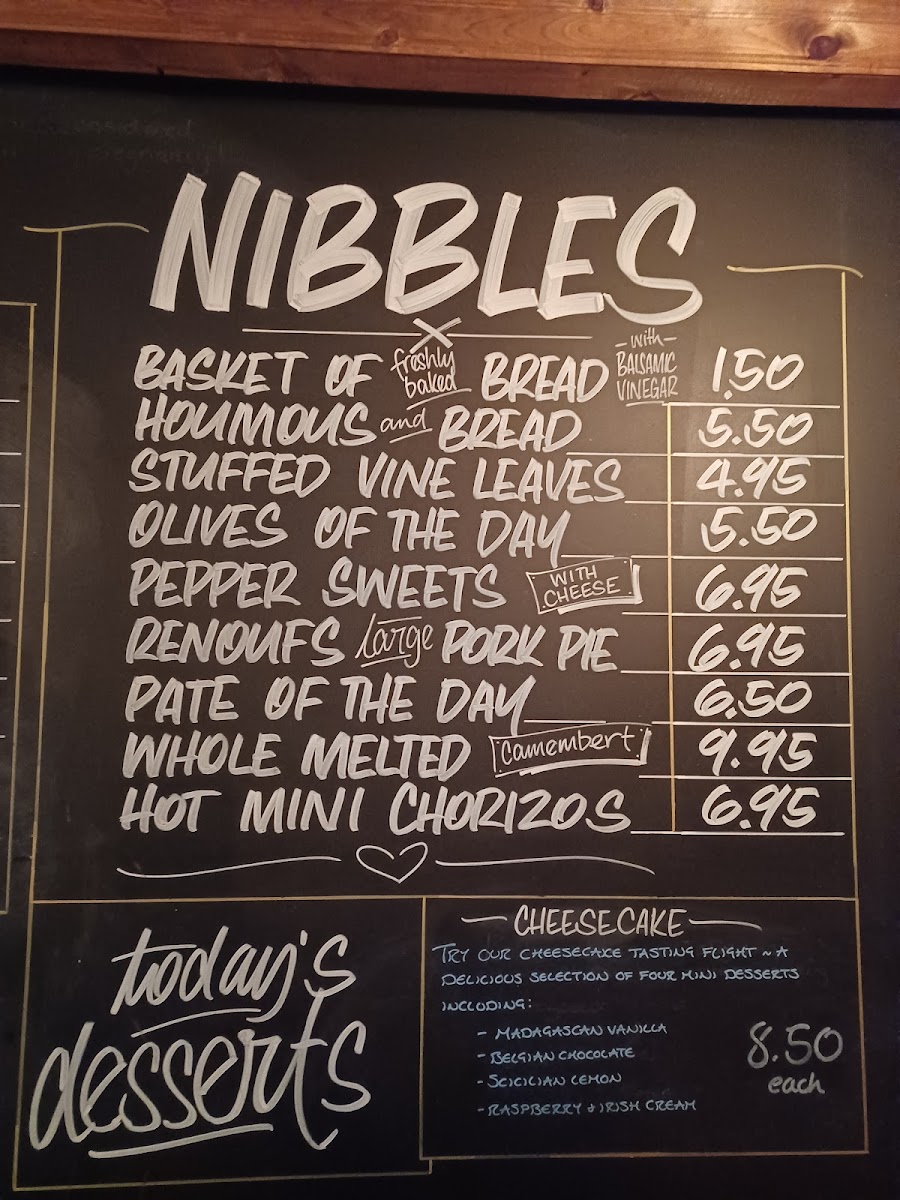 NIBBLES
BASKET OF freshly baked BREAD -with- BALSAMIC VINEGAR 1.50
HOUMOUS and BREAD 5.50
STUFFED VINE LEAVES 4.95
OLIVES OF THE DAY 5.50
PEPPER SWEETS WITH CHEESE 6.95
RENOUFS large PORK PIE 6.95
PATE OF THE DAY 6.50
WHOLE MELTED Camembert 9.95
HOT MINI CHORIZOS 6.95
today's
desserts
CHEESECAKE
TRY OUR CHEESECAKE TASTING FLIGHT ~ A
DELICIOUS SELECTION OF FOUR MINI DESSERTS
INCLUDING:
- MADAGASCAN VANILLA
- BELGIAN CHOCOLATE
- SCICILIAN LEMON
- RASPBERRY & IRISH CREAM
8.50
each